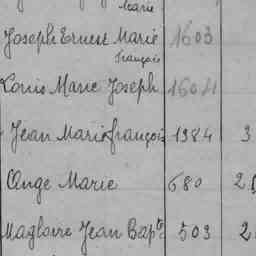 Marie
Joseph Ernest Marie 1603
François
Louis Marie Joseph 1604
Jean Marie françois 1384 3
Ange Marie 680 2
Magloire Jean Bapte 503 2